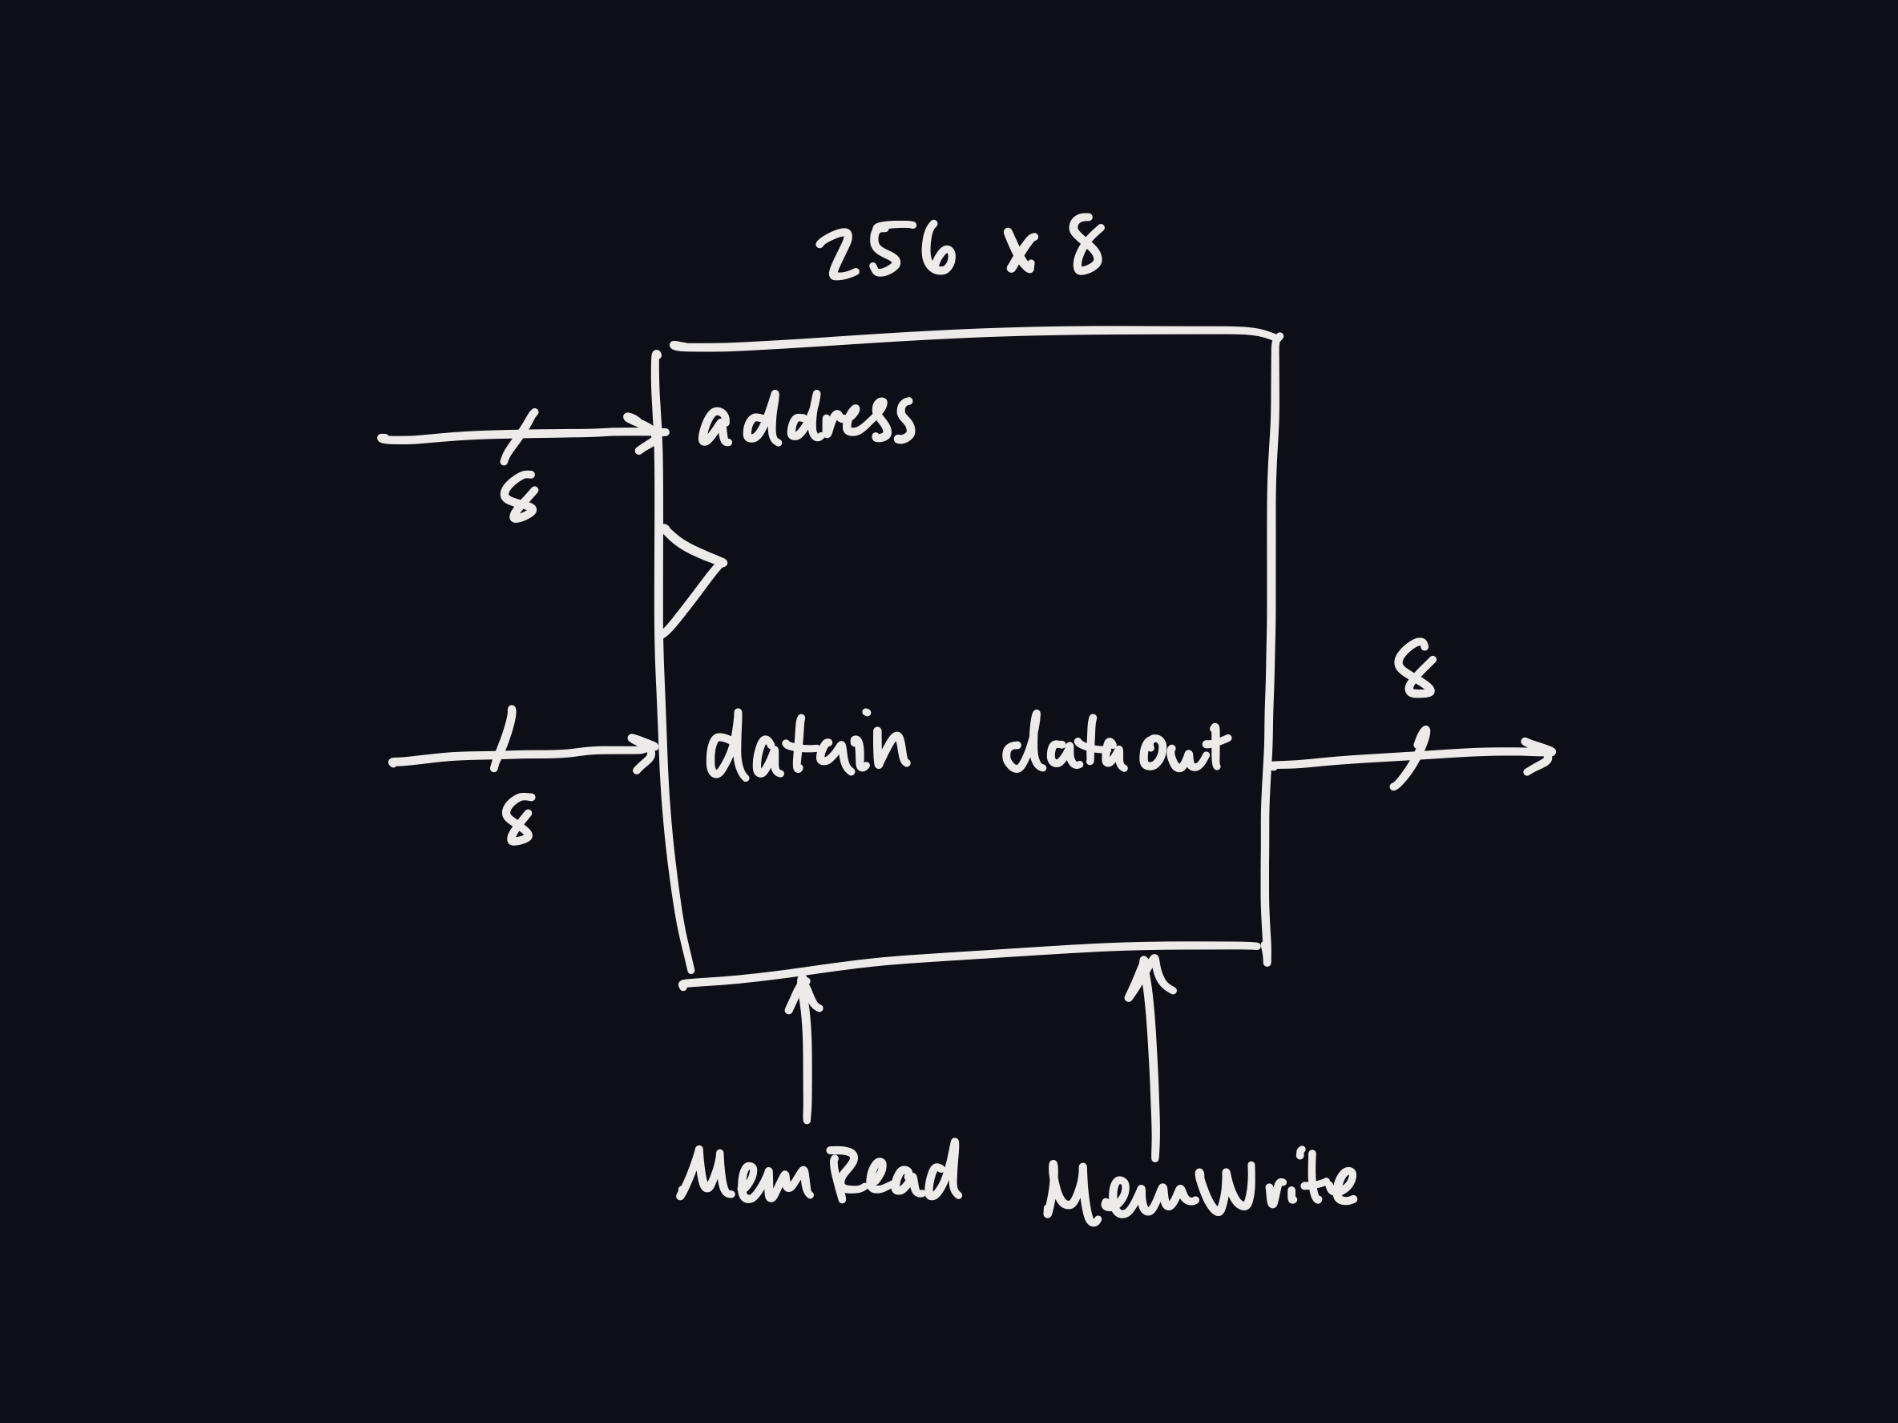 256 x 8
address
8
8
datain
dataout
8
MemRead
MemWrite